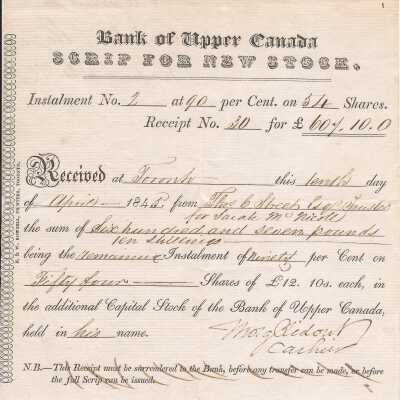 Bank of Upper Canada
SCRIP FOR NEW STOCK.
Instalment No. 2 at 90 per Cent. on 54 Shares.
Receipt No. 30 for £ 607.10.0
Received at Toronto this tenth day
of April 1845, from Thos C Street Esq Trustee
for Sarah McNicoll
the sum of Six hundred and seven pounds
ten shillings
being the remaining Instalment of ninety per Cent on
Fifty four Shares of £12. 10s. each, in
the additional Capital Stock of the Bank of Upper Canada,
held in his name.
Thos G Ridout
Cashier
N.B.—This Receipt must be surrendered to the Bank, before any transfer can be made, or before
the full Scrip can be issued.
H. & W. ROWSELL, PRINTERS, TORONTO.